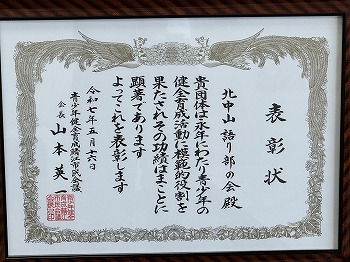 表彰状
北中山語り部の会殿
貴団体は永年にわたり青少年の
健全育成活動に模範的役割を
果たされその功績はまことに
顕著であります
よってこれを表彰します
令和七年五月十六日
青少年健全育成鯖江市民会議
会長 山本英一